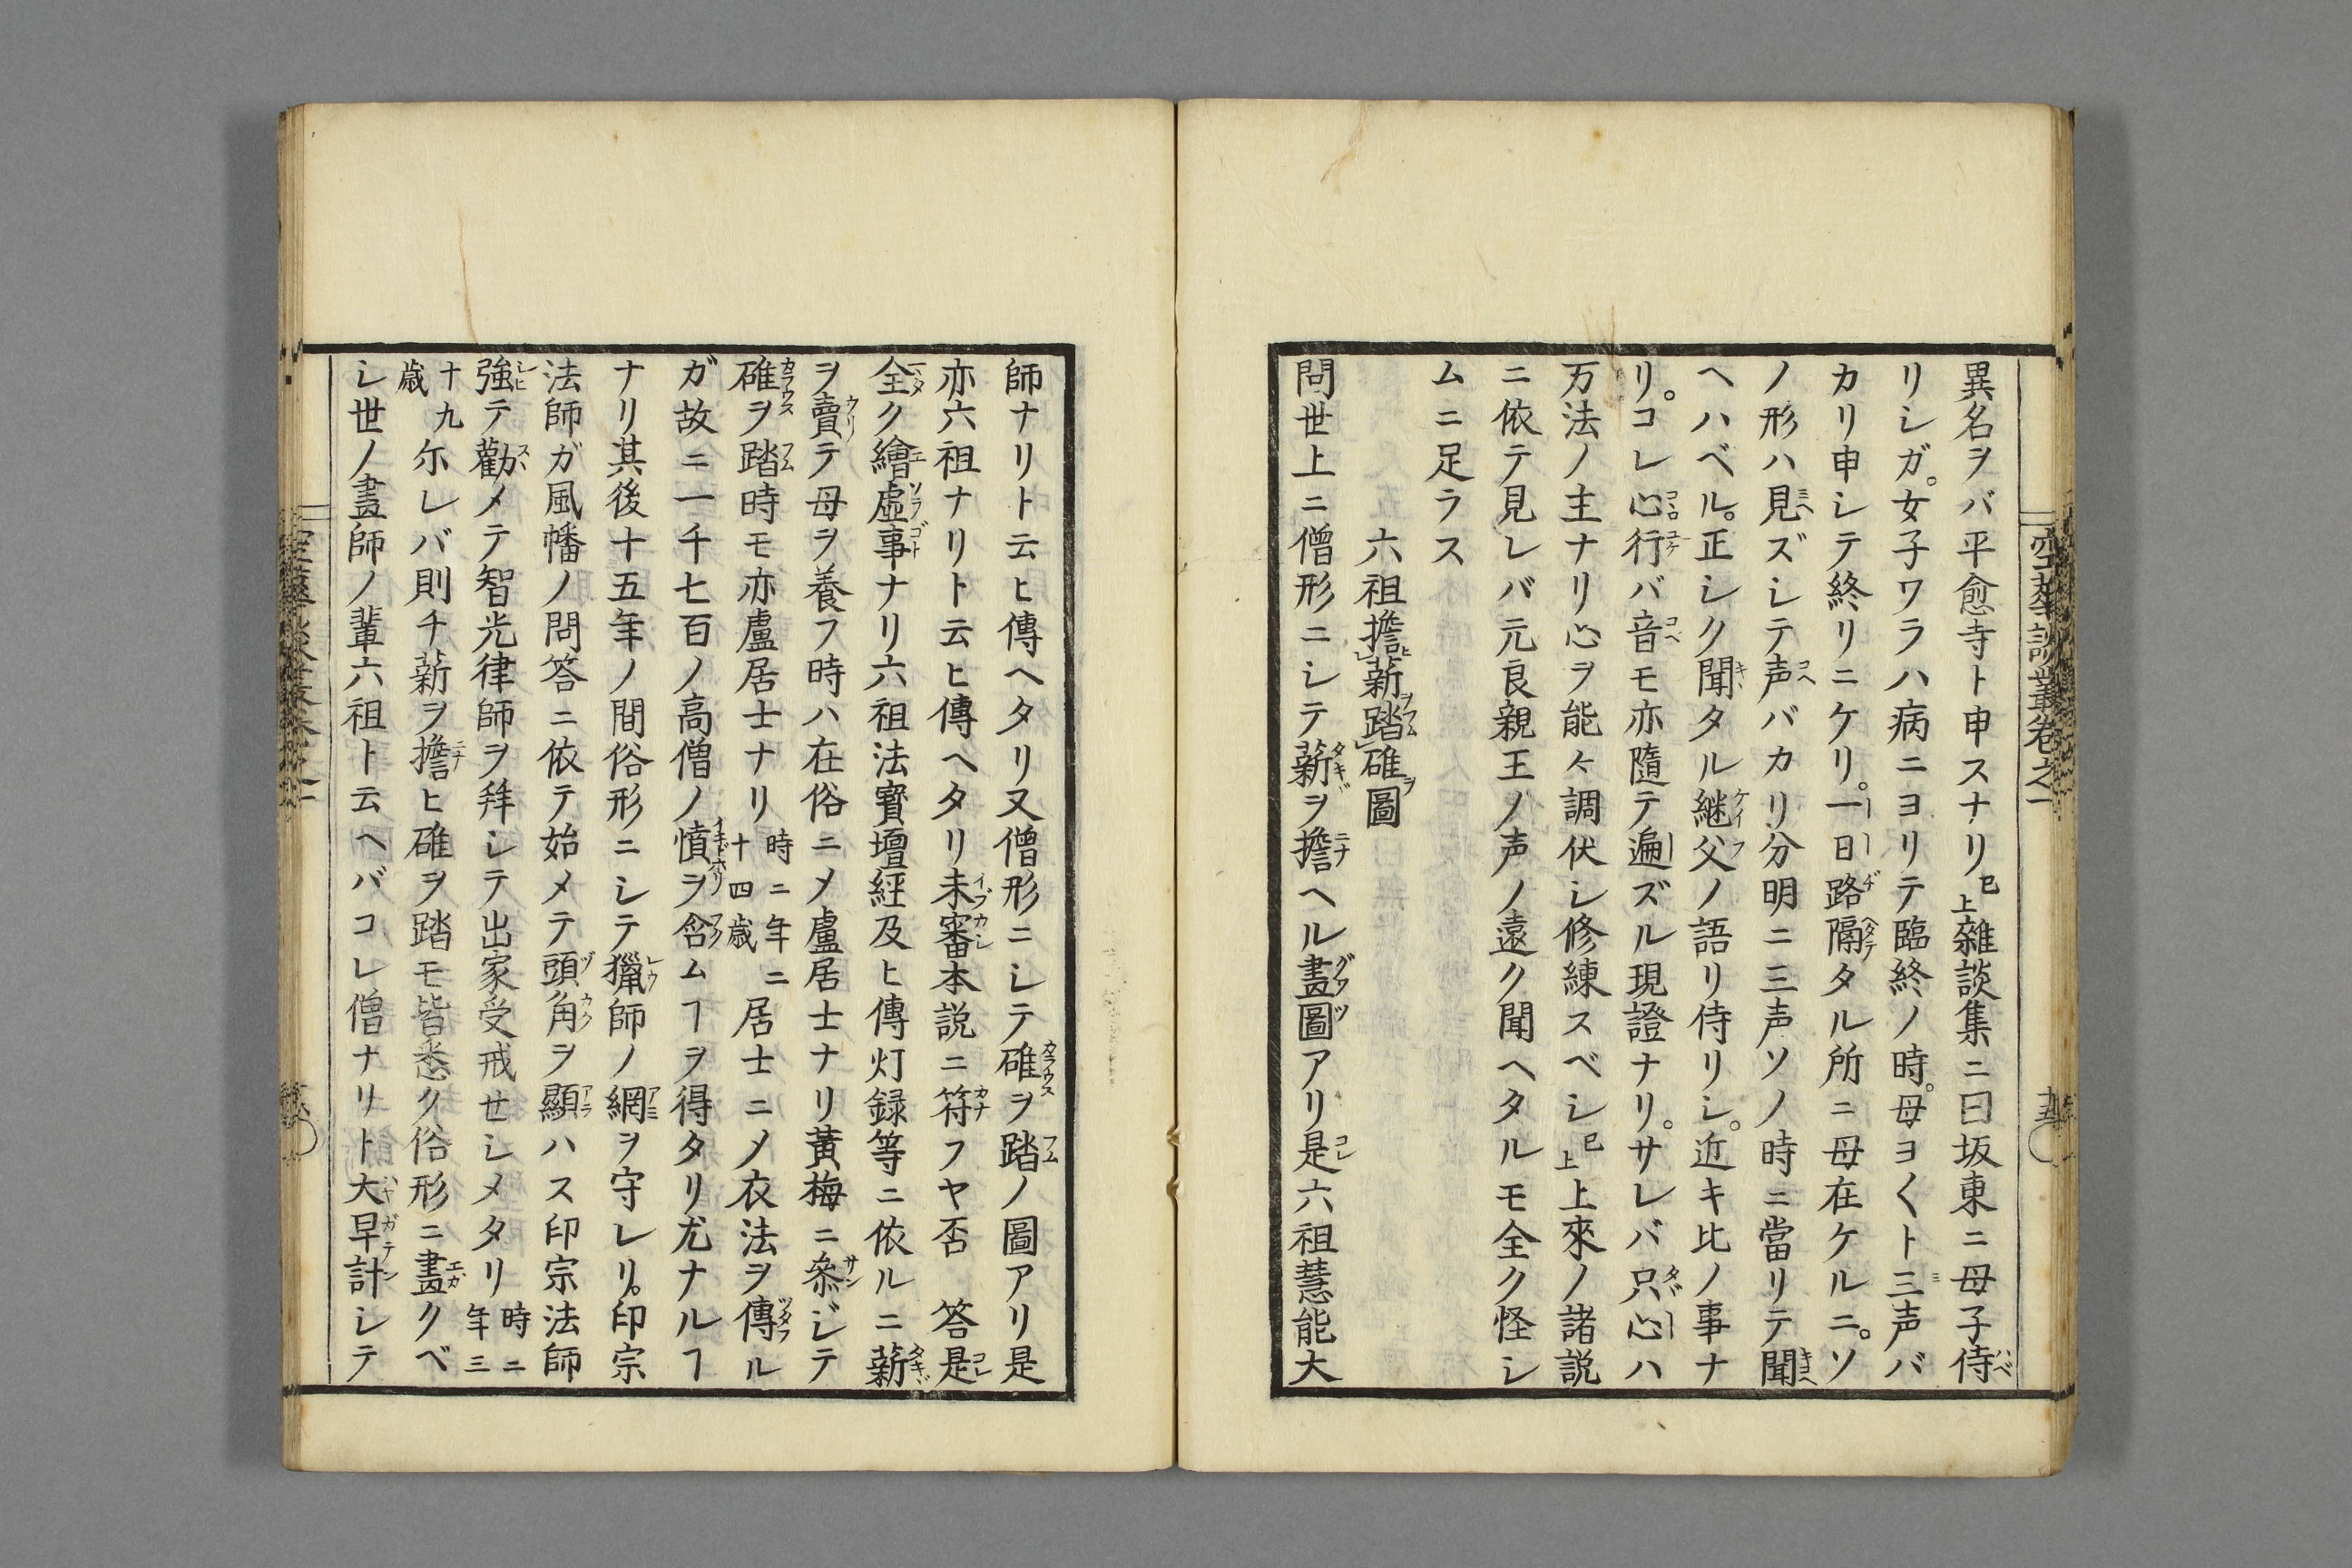 異名ヲバ平愈寺ト申スナリ已上雜談集ニ曰坂東ニ母子侍
リシガ。女子ワラハ病ニヨリテ臨終ノ時。母ヨ〱ト三声バ
カリ申シテ終リニケリ。一日路隔タル所ニ母在ケルニ。ソ
ノ形ハ見ズシテ声バカリ分明ニ三声ソノ時ニ當リテ聞
ヘハベル。正シク聞タル継父ノ語リ侍リシ。近キ比ノ事ナ
リ。コレ心行バ音モ亦隨テ遍ズル現證ナリ。サレバ只心ハ
万法ノ主ナリ心ヲ能々調伏シ修練スベシ已上上來ノ諸説
ニ依テ見レバ元良親王ノ声ノ遠ク聞ヘタルモ全ク怪シ
ムニ足ラス
六祖擔薪踏碓圖
問世上ニ僧形ニシテ薪ヲ擔ヘル畫圖アリ是六祖慧能大
師ナリト云ヒ傳ヘタリ又僧形ニシテ碓ヲ踏ノ圖アリ是
亦六祖ナリト云ヒ傳ヘタリ未審本説ニ符フヤ否　答是
全ク繪虛事ナリ六祖法寳壇經及ヒ傳灯録等ニ依ルニ薪
ヲ賣テ母ヲ養フ時ハ在俗ニメ盧居士ナリ黃梅ニ叅ジテ
碓ヲ踏時モ亦盧居士ナリ時ニ年ニ十四歳居士ニメ衣法ヲ傳ル
ガ故ニ一千七百ノ高僧ノ憤ヲ含ムヿヲ得タリ尤ナルヿ
ナリ其後十五年ノ間俗形ニシテ獵師ノ網ヲ守レリ。印宗
法師ガ風幡ノ問答ニ依テ始メテ頭角ヲ顯ハス印宗法師
強テ勸メテ智光律師ヲ拜シテ出家受戒セシメタリ時ニ年三
十九歳尓レバ則チ薪ヲ擔ヒ碓ヲ踏モ皆悉ク俗形ニ畫クベ
シ世ノ畫師ノ輩六祖ト云ヘバコレ僧ナリト大早計シテ